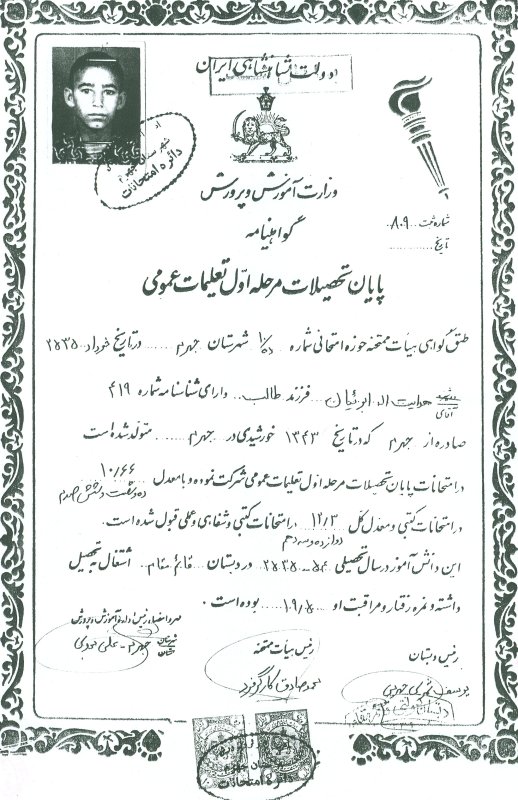 دولت شاهنشاهی ایران
وزارت آموزش و پرورش
گواهینامه
شماره ثبت ۸۰۹
تاریخ
پایان تحصیلات مرحله اول تعلیمات عمومی
طبق گواهی هیأت ممتحنه حوزه امتحانی شماره ۱۰/د شهرستان جهرم در تاریخ خرداد ۲۵۳۵
آقای هدایت اله فرزند طالب دارای شناسنامه شماره ۴۱۹
صادره از جهرم که در تاریخ ۱۳۴۳ خورشیدی در جهرم متولد شده است
در امتحانات پایان تحصیلات مرحله اول تعلیمات عمومی شرکت نموده و با معدل ۱۰/۶۶
ده و شصت و شش صدم
در امتحانات کتبی و معدل کل ۱۲/۳ در امتحانات کتبی و شفاهی و عملی قبول شده است.
دوازده و سه دهم
این دانش آموز در سال تحصیلی ۳۵-۲۵۳۴ در دبستان قائم مقام اشتغال به تحصیل
داشته و نمره رفتار و مراقبت او بوده است.
رئیس دبستان
رئیس هیأت ممتحنه
مهر و امضاء رئیس اداره آموزش و پرورش
شهرستان جهرم - علی
محمد صادق کارگر فرد
یوسف
دایره امتحانات
دایره امتحانات